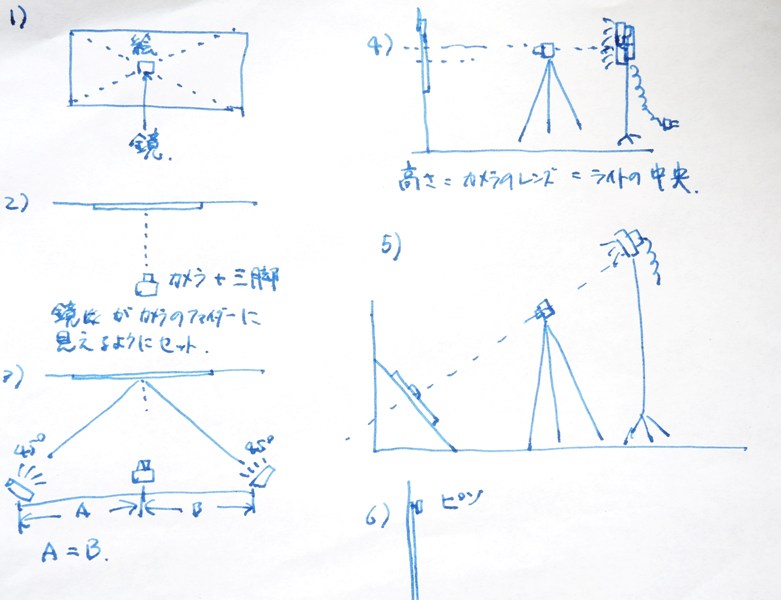 1)
絵
鏡.
2)
カメラ + 三脚
鏡は がカメラのファインダーに
見えるようにセット.
3)
45° 45°
A B
A = B.
4)
高さ = カメラのレンズ = ライトの中央.
5)
6) ピン